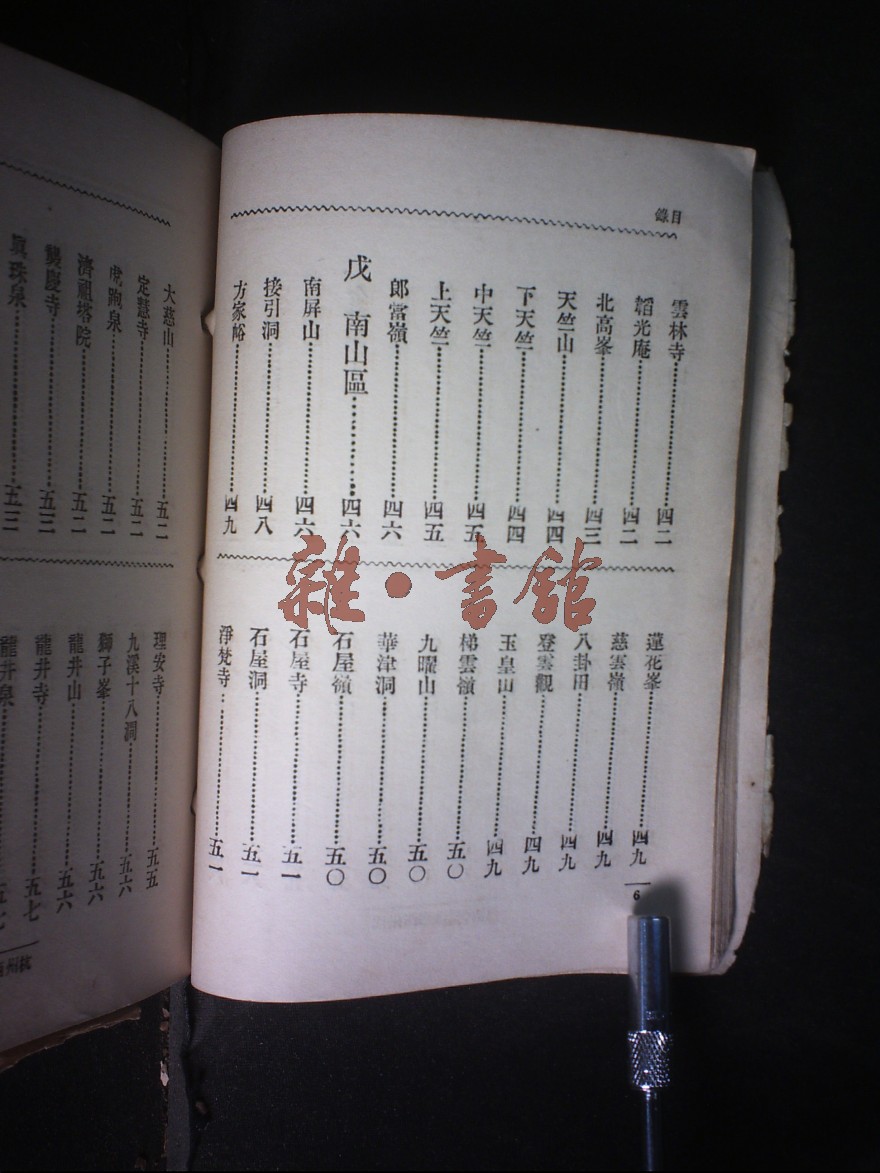 目錄
雲林寺…………四二
韜光庵…………四二
北高峯…………四三
天竺山…………四四
下天竺…………四四
中天竺…………四五
上天竺…………四五
郎當嶺…………四六
戊 南山區…………四六
南屏山…………四六
接引洞…………四八
方家峪…………四九
蓮花峯…………四九
慈雲嶺…………四九
八卦田…………四九
登雲觀…………四九
玉皇山…………四九
梯雲嶺…………五〇
九曜山…………五〇
華津洞…………五〇
石屋嶺…………五〇
石屋寺…………五一
石屋洞…………五一
淨梵寺…………五一
6
雜·書館
大慈山…………五二
定慧寺…………五二
虎跑泉…………五二
濟祖塔院…………五二
襲慶寺…………五三
眞珠泉…………五三
理安寺…………五五
九溪十八澗…………五六
獅子峯…………五六
龍井山…………五六
龍井寺…………五七
龍井泉…………五七
杭州